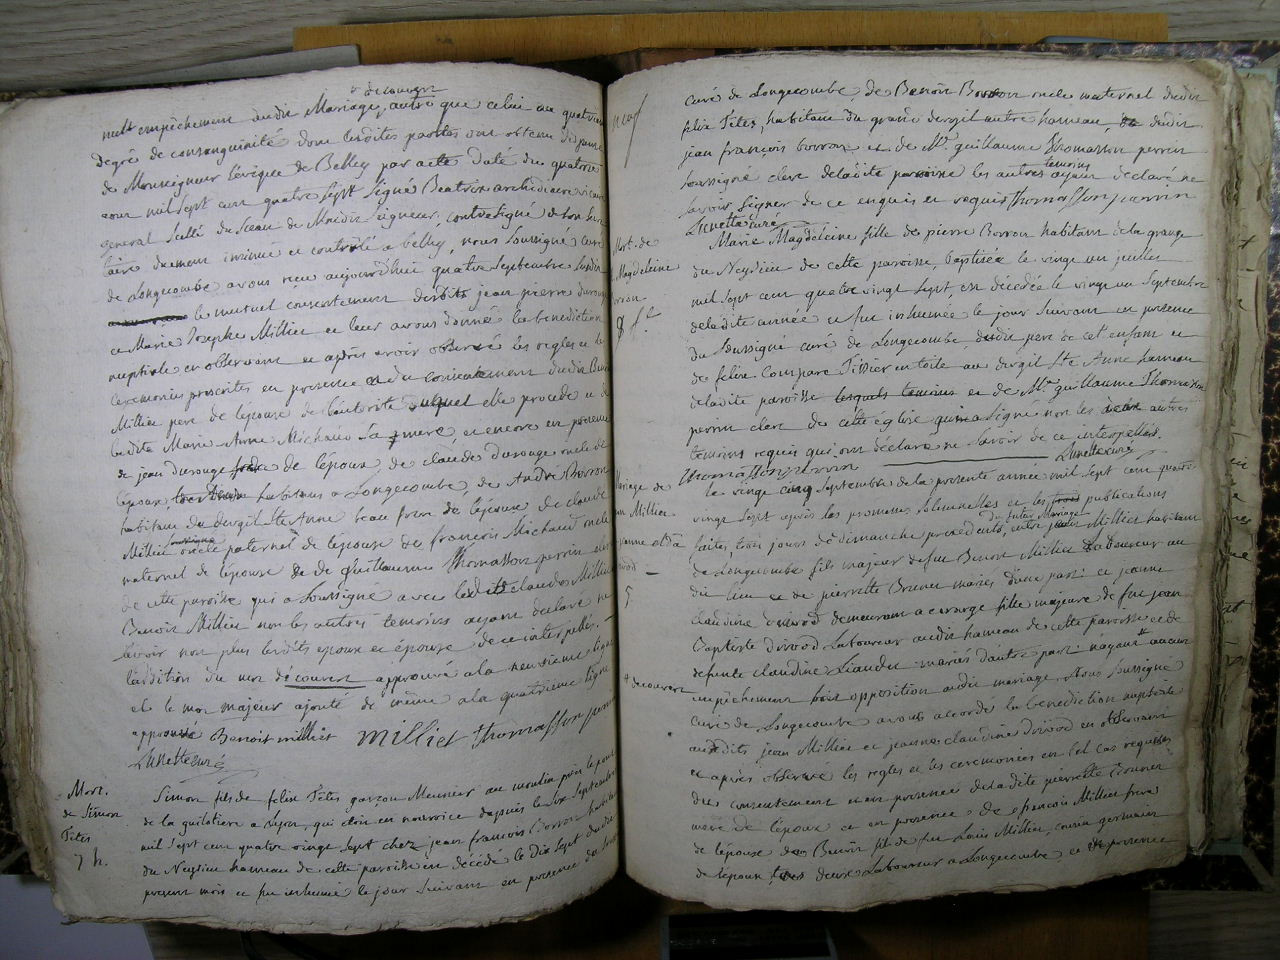 + decouvert
nult empêchement audit Mariage, autre que celui au quatrieme
degré de consanguinité dont lesdites parties ont obtenu dispense
de Monseigneur l'évêque de Belley par acte daté du quatorze
aout mil sept cent quatre vingt sept signé Beatrix archidiacre vicaire
general scellé du sceau de Mondit seigneur, contresigné de son secre
taire duement insinué et controlé a belley, nous soussigné curé
de Longecombe avons reçu aujourdhui quatre Septembre susdit
le mutuel consentement desdits jean pierre durouge
et Marie Josephe Milliet et leur avons donné la benediction
nuptiale en observant et après avoir observé les regles et les
ceremonies prescrites en presence et du consentement dudit Benoit
Milliet pere de l'épouse de l'autorité duquel elle procede et de
ladite Marie Anne Michaud sa mere et encore en presence
de jean durouge de l'époux, de claude durouge oncle de
l'époux, habitans a Longecombe, de André Borron
habitant du dergit Ste Anne beau frere de l'épouse de claude
Milliet oncle paternel de l'épouse de francois Michaud oncle
maternel de l'épouse & de guillaume Thomasson perrin clerc
de cette paroisse qui a soussigné avec lesdits claude Milliet
Benoit Milliet non les autres temoins ayant declaré ne
savoir non plus lesdits epoux et épouse de ce interpellés. —
L'addition du mot découvert approuvé a la neuvieme ligne
et le mot majeur ajouté de même a la quatrieme ligne
approuvé Benoit milliet milliet Thomasson perrin
Lunette curé
Mort.
de Simon
Tetes
7 h.
Simon fils de felix Tetes garçon Meunier au moulin près le pont
de la guilotiere a Lyon, qui etoit en nourrice depuis le six Septembre
mil sept cent quatre vingt sept chez jean francois Borron habitant
du Neydieu hameau de cette paroisse est décédé le dix sept dudit
present mois et fut inhumé le jour suivant en presence du sous
curé de Longecombe, de Benoit Borron oncle maternel dudit
felix Tetes, habitant du grand dergit autre hameau, dudit
jean françois borron et de Mr. guillaume Thomasson perrin
soussigné clerc de ladite paroisse les autres temoins ayant déclaré ne
savoir signer de ce enquis et requis Thomasson perrin
Lunette curé
Mort. de
M. Magdeleine
Borron
8 f.e
Marie Magdeleine fille de pierre Borron habitant de la grange
du Neydieu de cette paroisse, baptisée le vingt un juillet
mil sept cent quatre vingt sept, est décédée le vingt un Septembre
de ladite année et fut inhumée le jour suivant en presence
du soussigné curé de Longecombe dudit pere de cet enfant et
de felix Compare Tissier en toile au dergit Ste Anne hameau
de ladite paroisse lesquels temoins et de Mr. guillaume Thomasson
perrin clerc de cette église qui a signé non les autres
temoins requis qui ont déclaré ne savoir de ce interpellés.
Thomasson perrin Lunette curé
Mariage de
jean Milliet
jeanne clda
divood
5
Le vingt cinq Septembre de la presente année mil sept cent quatre
vingt sept après les promesses solemnelles et les trois publications
du futur mariage
faites trois jours de dimanche precedents, entre jean Milliet habitant
de Longecombe fils majeur de feu Benoit Milliet Laboureur au
dit lieu et de pierrette Brunet mariés d'une part et jeanne
claudine divood demeurant a evorge fille majeure de feu jean
Baptiste divood Laboureur audit hameau de cette paroisse et de
defunte claudine Liandet mariés d'autre part n'ayant aucun
+ decouvert
empêchement opposition audit mariage Nous soussigné
curé de Longecombe avons accordé la benediction nuptiale
auxdits jean Milliet et jeanne claudine divood en observant
et après observé les regles et les ceremonies en tel cas requises
du consentement et en presence de ladite pierrette Brunet
mere de l'époux et en presence de francois Milliet frere
de l'épouse de Benoit fils de feu Louis Milliet, cousin germain
de l'époux, tous deux Laboureur a Longecombe et de presence